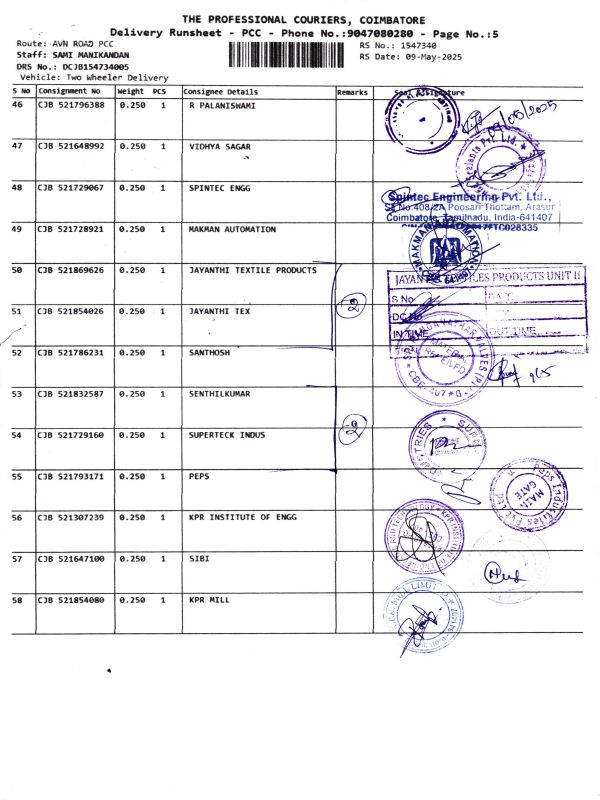 THE PROFESSIONAL COURIERS, COIMBATORE
Delivery Runsheet - PCC - Phone No.:9047080280 - Page No.:5
Route: AVN ROAD PCC
RS No.: 1547340
Staff: SAMI MANIKANDAN
RS Date: 09-May-2025
DRS No.: DCJB154734005
Vehicle: Two Wheeler Delivery
S No Consignment No Weight PCS Consignee Details Remarks Seal Signature
46 CJB 521796388 0.250 1 R PALANISWAMI
09/05/2025
47 CJB 521648992 0.250 1 VIDHYA SAGAR
Pvt. Ltd.
48 CJB 521729067 0.250 1 SPINTEC ENGG
Spintec Engineering Pvt. Ltd.,
408/2A Poosari Thottam, Arasur
Coimbatore, Tamilnadu, India-641407
49 CJB 521728921 0.250 1 MAKMAN AUTOMATION
MAKMAN AUTOMATION
50 CJB 521869626 0.250 1 JAYANTHI TEXTILE PRODUCTS
JAYANTHI TEXTILES PRODUCTS UNIT II
S No
DATE
51 CJB 521854026 0.250 1 JAYANTHI TEX
2
DC No
IN TIME OUT TIME
52 CJB 521786231 0.250 1 SANTHOSH
9/5
53 CJB 521832587 0.250 1 SENTHILKUMAR
2
54 CJB 521729160 0.250 1 SUPERTECK INDUS
55 CJB 521793171 0.250 1 PEPS
Peps Industries
MAIN GATE
56 CJB 521307239 0.250 1 KPR INSTITUTE OF ENGG
KPR INSTITUTE OF ENGINEERING
57 CJB 521647100 0.250 1 SIBI
58 CJB 521854080 0.250 1 KPR MILL
MILL LIMITED